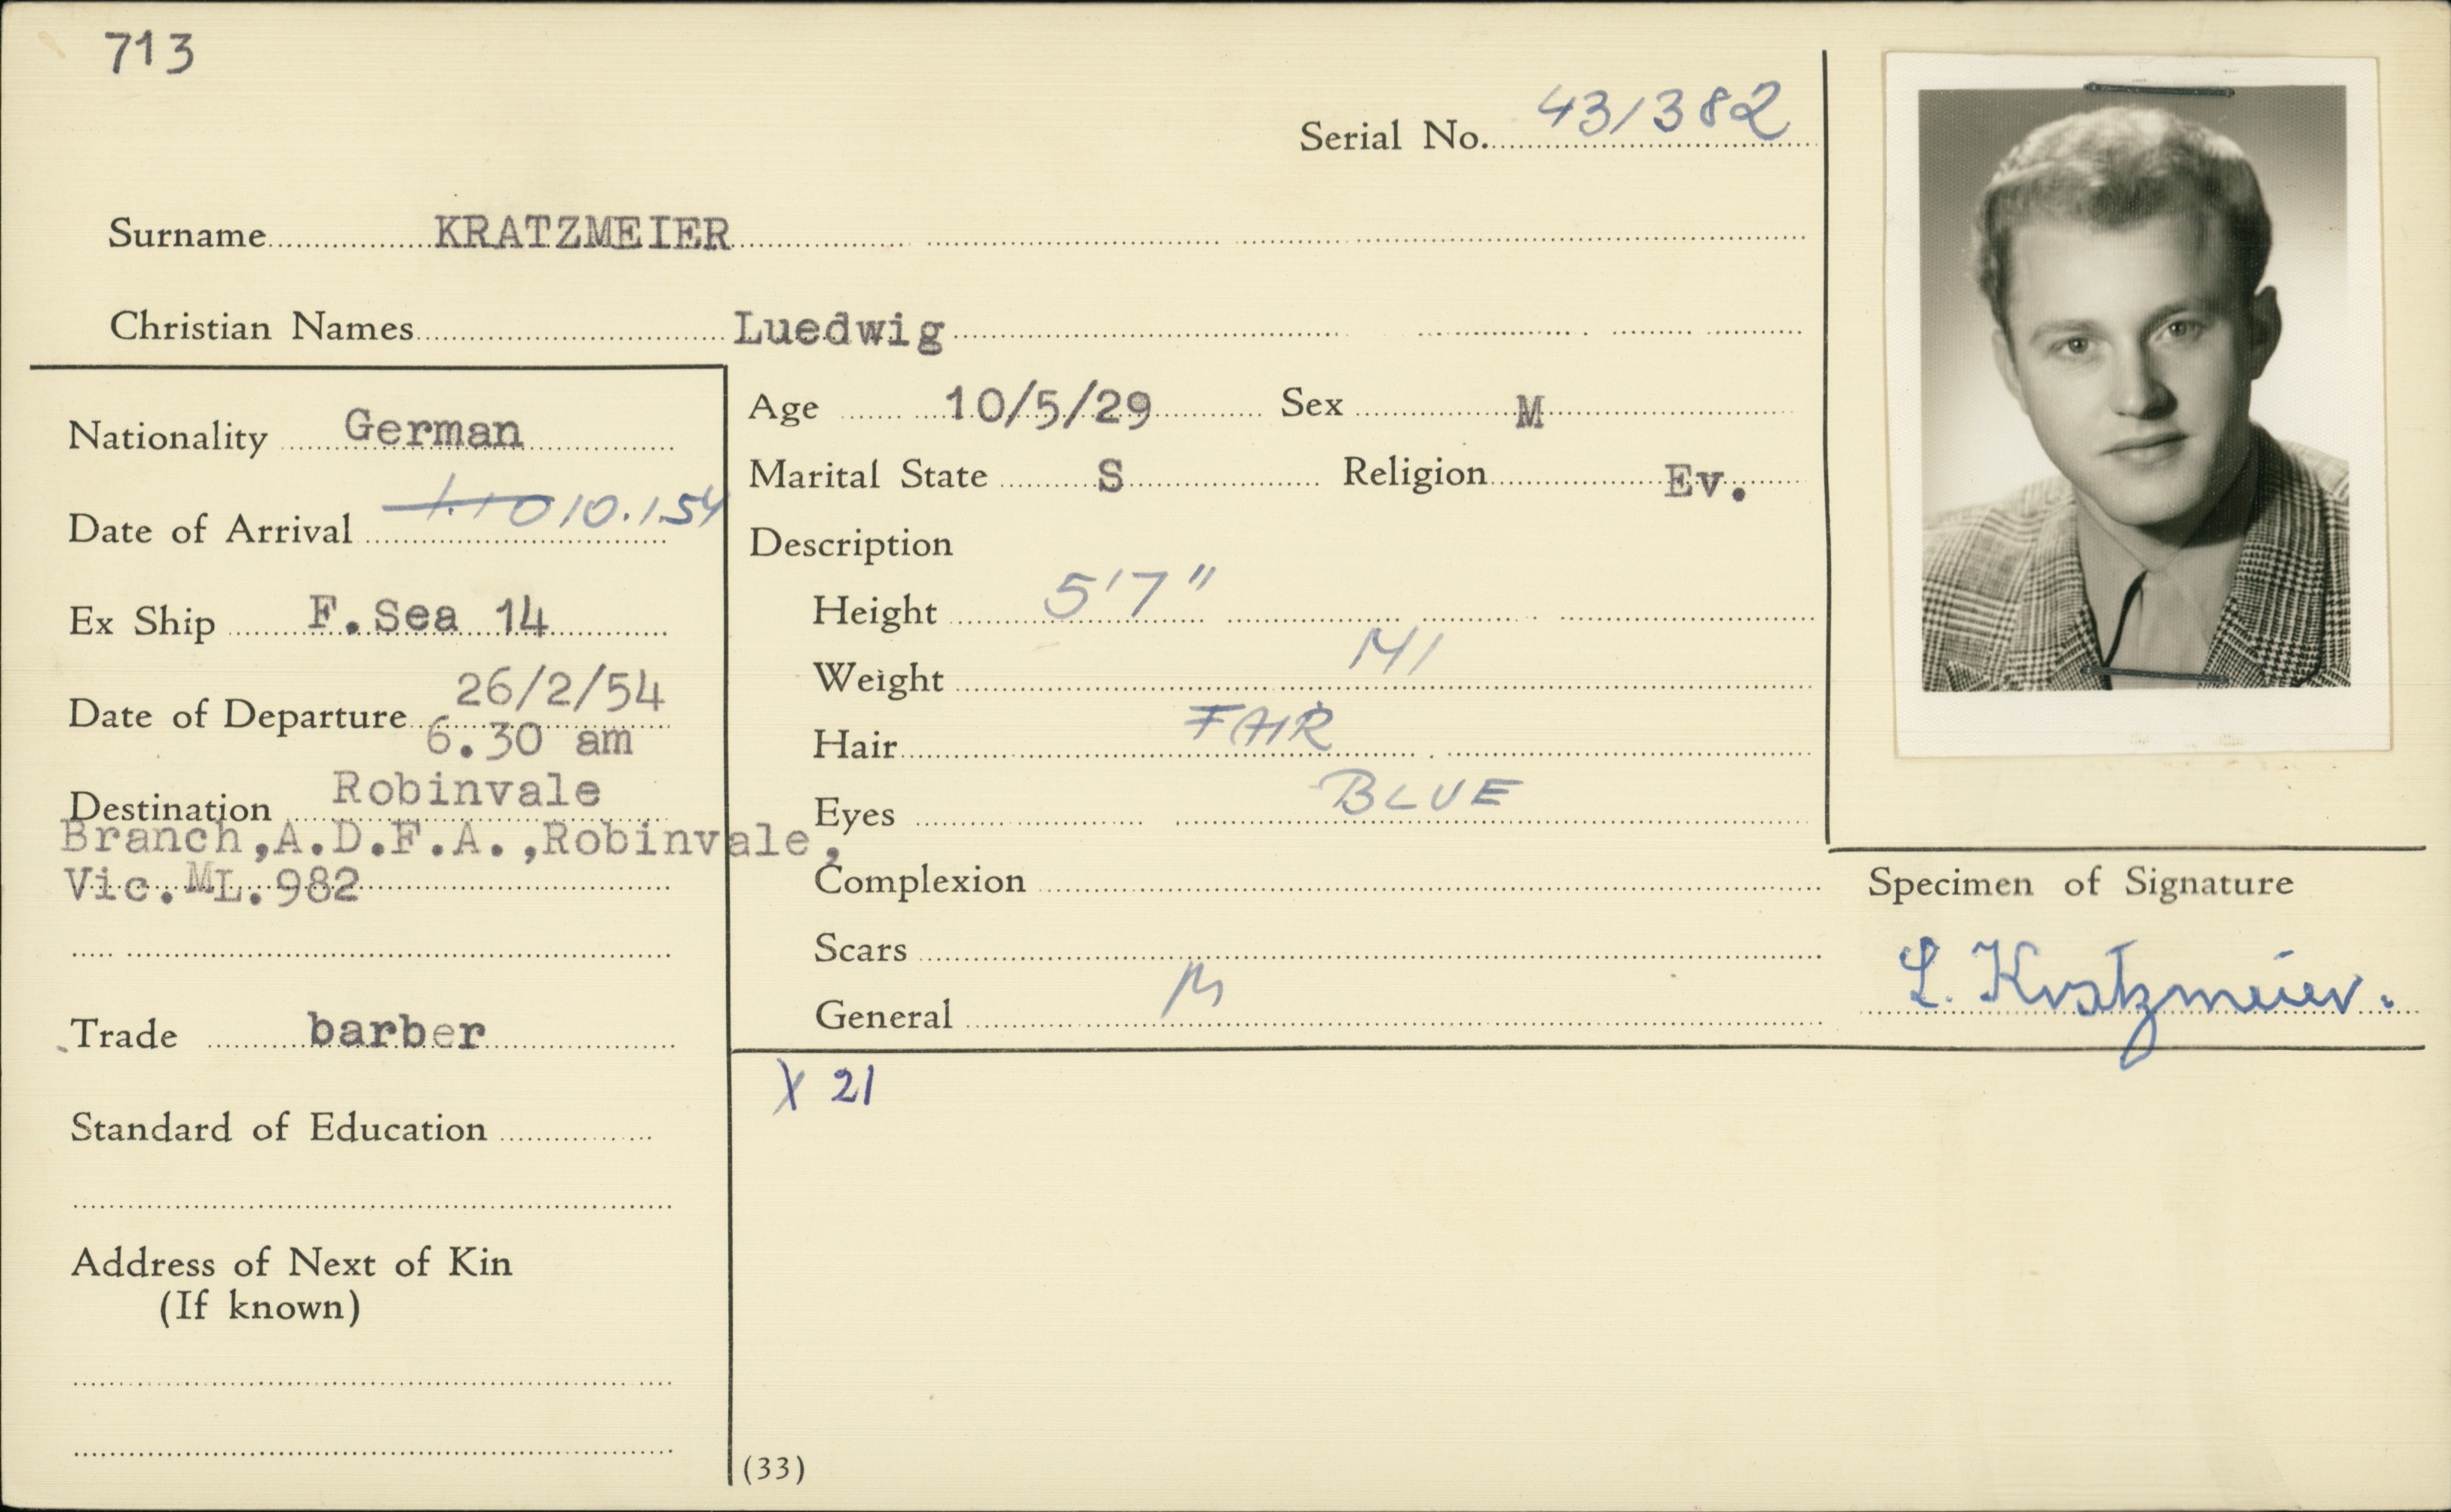 713
Serial No. 43/382
Surname KRATZMEIER
Christian Names Luedwig
Nationality German
Date of Arrival 1.10 10.1.54
Ex Ship F.Sea 14
Date of Departure 26/2/54
6.30 am
Destination Robinvale
Branch,A.D.F.A.,Robinvale,
Vic.ML.982
Trade barber
Standard of Education
Address of Next of Kin
(If known)
Age 10/5/29 Sex M
Marital State S Religion Ev.
Description
Height 5'7"
Weight 141
Hair FAIR
Eyes BLUE
Complexion
Scars
General
X 21
(33)
Specimen of Signature
L. Kratzmeier.